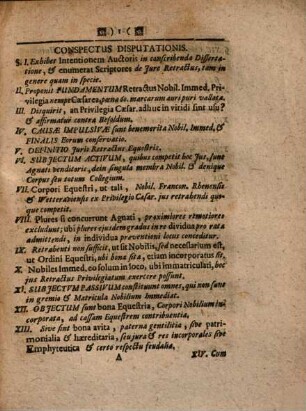 ) 1 (
CONSPECTUS DISPUTATIONIS.
§. I. Exhibet Intentionem Auctoris in conscribenda Disserta-
tione, & enumerat Scriptores de Jure Retractus, tam in
genere quam in specie.
II. Proponit FUNDAMENTUM Retractus Nobil. Immed. Pri-
vilegia nempe Cæsarea, pœna 40. marcarum auri puri vallata.
III. Disquirit, an Privilegia Cæsar. adhuc in viridi sint usu?
& affirmatur contra Besoldum.
IV. CAUSÆ IMPULSIVÆ sunt benemerita Nobil. Immed. &
FINALIS Eorum conservatio.
V. DEFINITIO Juris Retractus Equestris.
VI. SUBJECTUM ACTIVUM, quibus competit hoc Jus, sunt
Agnati venditoris, dein singula membra Nobil. & denique
Corpus seu totum Collegium.
VII. Corpori Equestri, ut tali, Nobil. Francon. Rhenensis
& Wetteraviensis ex Privilegio Cæsar. jus retrahendi quo-
que competit.
VIII. Plures si concurrunt Agnati, proximiores remotiores
excludunt; ubi plures ejusdem gradus in re dividua pro rata
admittendi, in individua præventioni locus conceditur.
IX. Retrahenti non sufficit, ut sit Nobilis, sed necessarium est,
ut Ordini Equestri, ubi bona sita, etiam incorporatus sit.
X. Nobiles Immed. eo solum in loco, ubi immatriculati, hoc
jus Retractus Privilegiatum exercere possunt.
XI. SUBJECTUM PASSIVUM constituunt omnes, qui non sunt
in gremio & Matricula Nobilium Immediat.
XII. OBJECTUM sunt bona Equestria, Corpori Nobilium in-
corporata, ad cassam Equestrem contribuentia,
XIII. Sive sint bona avita, paterna gentilitia, sive patri-
monialia & hæreditaria, seu jura & res incorporales sive
Emphyteutica & certo respectu feudalia,
A XIV. Cum